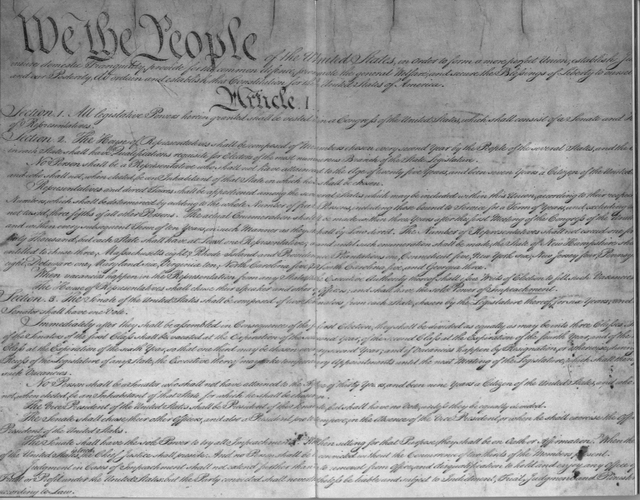 We the People of the United States, in Order to form a more perfect Union, establish
insure domestic Tranquility, provide for the common defence, promote the general Welfare, and secure the Blessings of Liberty to
and our Posterity, do ordain and establish this Constitution for the United States of America.
Article. I.
Section. 1. All legislative Powers herein granted shall be vested in a Congress of the United States, which shall consist of a Senate and
of Representatives.
Section. 2. The House of Representatives shall be composed of Members chosen every second Year by the People of the several States, and the
in each State shall have the Qualifications requisite for Electors of the most numerous Branch of the State Legislature.
No Person shall be a Representative who shall not have attained to the Age of twenty five Years, and been seven Years a Citizen of the United
and who shall not, when elected, be an Inhabitant of that State in which he shall be chosen.
Representatives and direct Taxes shall be apportioned among the several States which may be included within this Union, according to their
Numbers, which shall be determined by adding to the whole Number of free Persons, including those bound to Service for a Term of Years,
not taxed, three fifths of all other Persons. The actual Enumeration shall be made within three Years after the first Meeting of the Congress of the
and within every subsequent Term of ten Years, in such Manner as they shall by Law direct. The Number of Representatives shall not exceed one for
thirty Thousand, but each State shall have at Least one Representative; and until such enumeration shall be made, the State of New Hampshire shall
entitled to chuse three, Massachusetts eight, Rhode Island and Providence Plantations one, Connecticut five, New York six, New Jersey four, Pennsyl
eight, Delaware one, Maryland six, Virginia ten, North Carolina five, South Carolina five, and Georgia three.
When vacancies happen in the Representation from any State, the Executive Authority thereof shall issue Writs of Election to fill such Vacancies.
The House of Representatives shall chuse their Speaker and other Officers; and shall have the sole Power of Impeachment.
Section. 3. The Senate of the United States shall be composed of two Senators from each State, chosen by the Legislature thereof, for six Years; and
Senator shall have one Vote.
Immediately after they shall be assembled in Consequence of the first Election, they shall be divided as equally as may be into three Classes.
of the Senators of the first Class shall be vacated at the Expiration of the second Year, of the second Class at the Expiration of the fourth Year,
Class at the Expiration of the sixth Year, so that one third may be chosen every second Year; and if Vacancies happen by Resignation, or otherwise,
Recess of the Legislature of any State, the Executive thereof may make temporary Appointments until the next Meeting of the Legislature, which shall then
such Vacancies.
No Person shall be a Senator who shall not have attained to the Age of thirty Years, and been nine Years a Citizen of the United States, and who
not, when elected, be an Inhabitant of that State for which he shall be chosen.
The Vice President of the United States shall be President of the Senate, but shall have no Vote, unless they be equally divided.
The Senate shall chuse their other Officers, and also a President pro tempore, in the Absence of the Vice President, or when he shall exercise the Office
President of the United States.
The Senate shall have the sole Power to try all Impeachments. When sitting for that Purpose, they shall be on Oath or Affirmation. When the
of the United States is tried, the Chief Justice shall preside: And no Person shall be convicted without the Concurrence of two thirds of the Members present.
Judgment in Cases of Impeachment shall not extend further than to removal from Office, and disqualification to hold and enjoy any Office
Profit under the United States: but the Party convicted shall nevertheless be liable and subject to Indictment, Trial, Judgment and
according to Law.